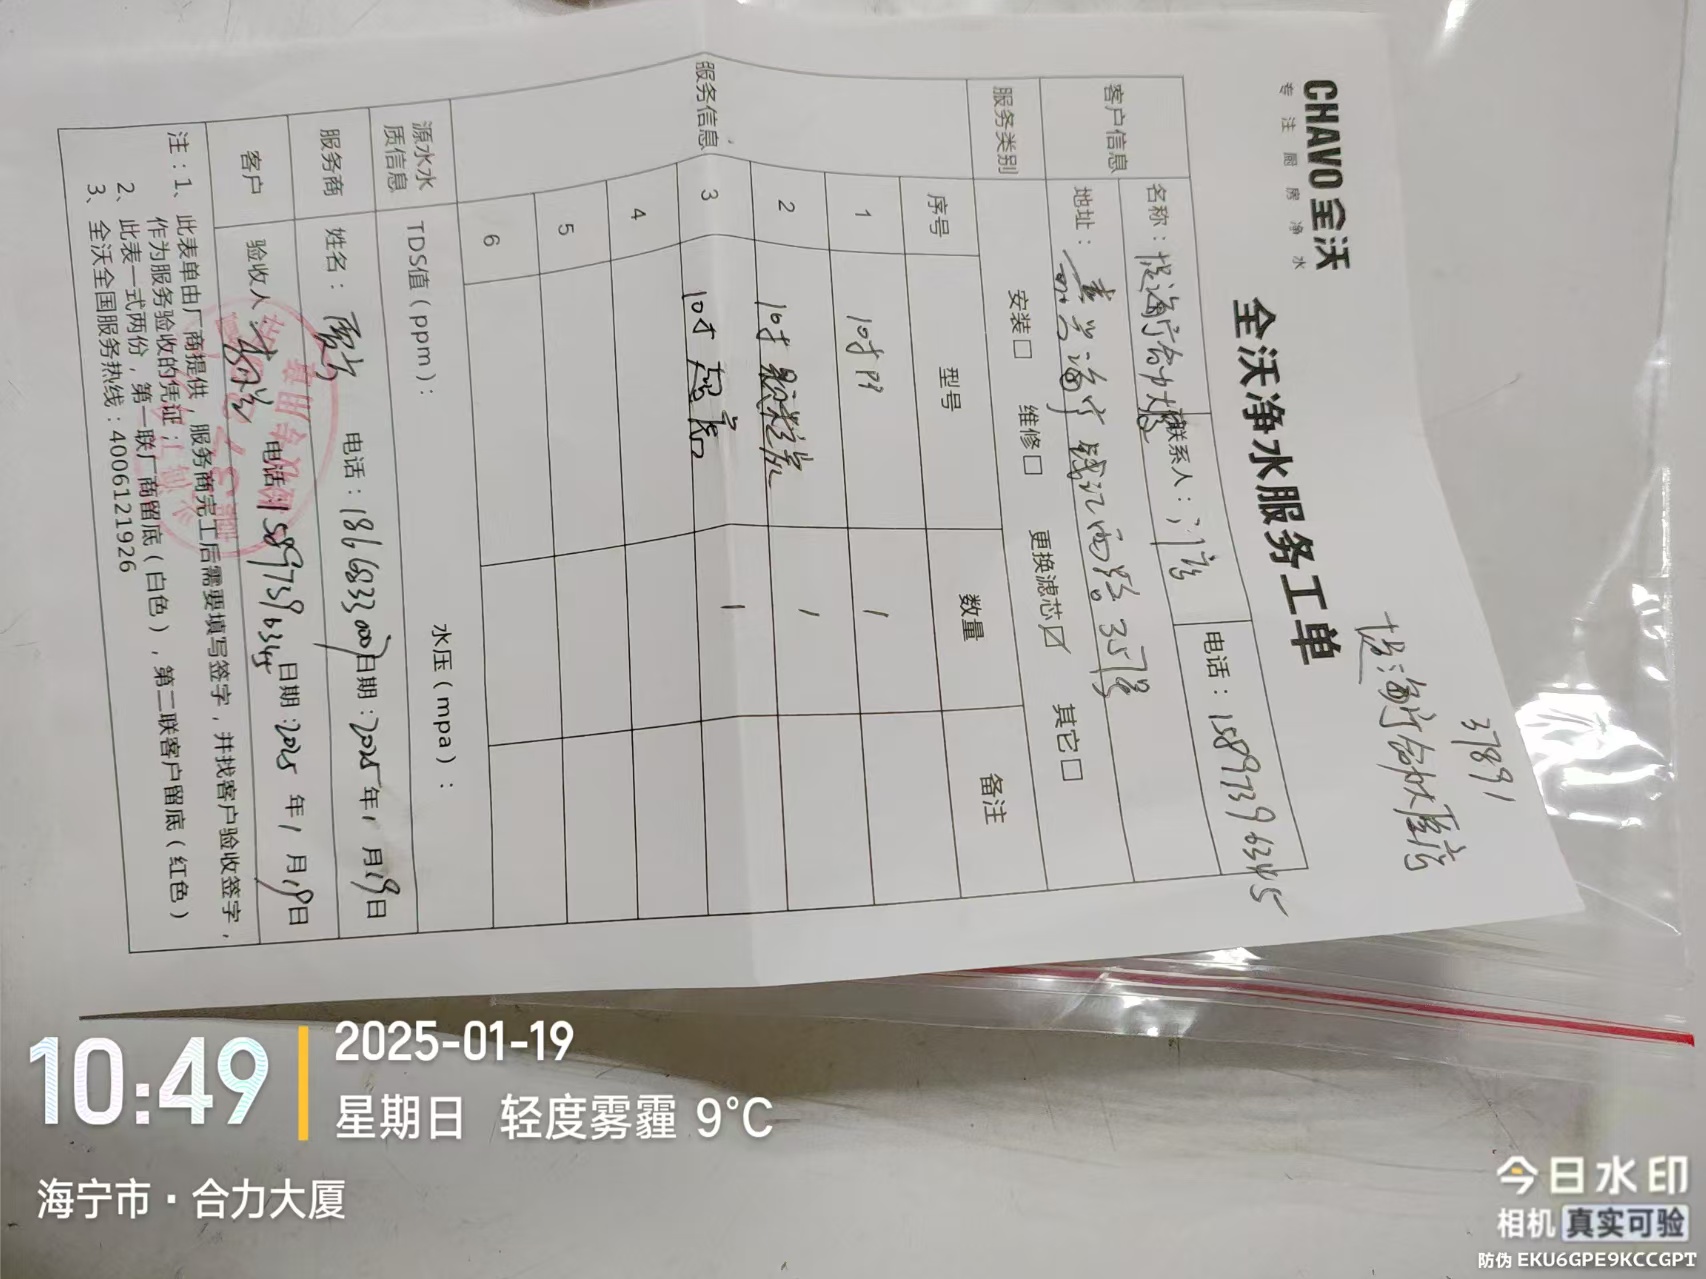 37891
海宁合力大厦店
CHAVO全沃
专注厨房净水
全沃净水服务工单
客户信息
名称：海宁合力大厦
联系人：
电话：15897396345
地址：嘉兴海宁钱江西路357号
服务类别
安装□ 维修□ 更换滤芯☑ 其它□
服务信息
序号 型号 数量 备注
1 10寸PP 1
2 10寸颗粒炭 1
3 10寸超滤 1
4
5
6
源水水质信息
TDS值（ppm）： 水压（mpa）：
服务商 姓名： 电话：18616833007 日期：2025年1月19日
客户 验收人： 电话：15897396345 日期：2025年1月19日
注：1、此表单由厂商提供，服务商完工后需要填写签字，并找客户验收签字，
作为服务验收的凭证；
2、此表一式两份，第一联厂商留底（白色），第二联客户留底（红色）
3、全沃全国服务热线：4006121926
10:49
2025-01-19
星期日 轻度雾霾 9°C
海宁市·合力大厦
今日水印
相机 真实可验
防伪 EKU6GPE9KCCGPT